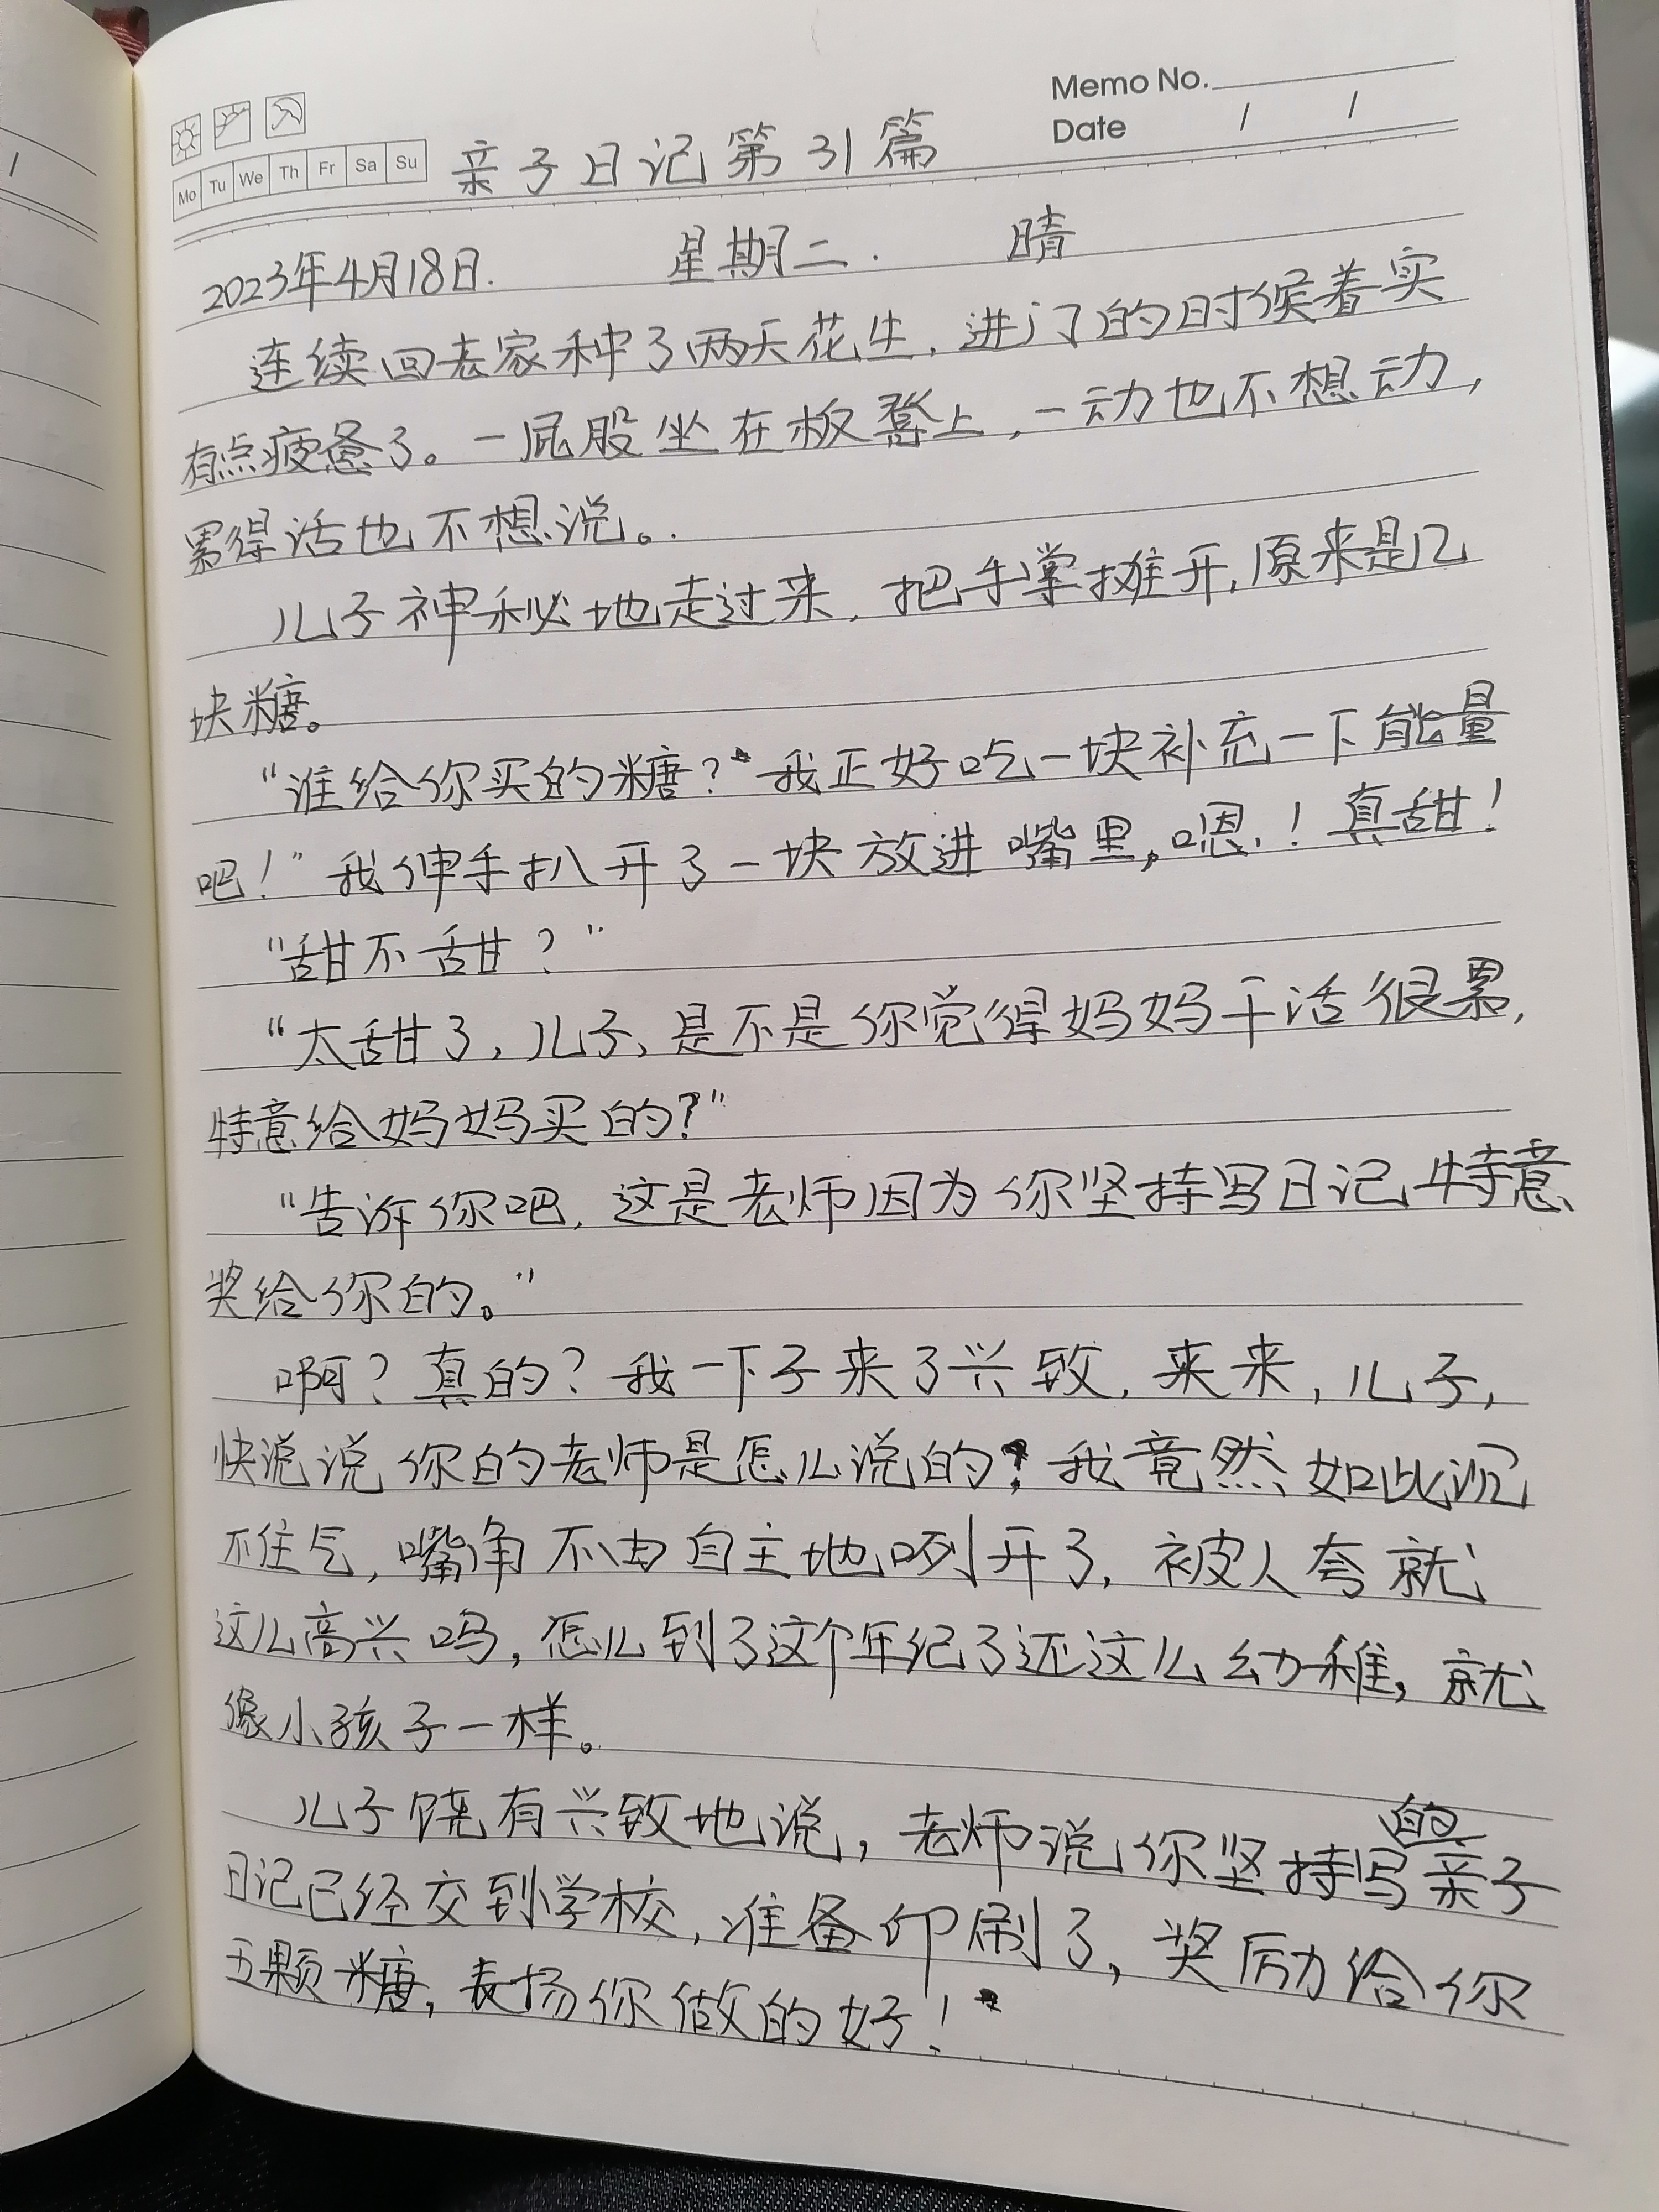 Memo No.
Date / /
Mo Tu We Th Fr Sa Su
亲子日记第31篇
2023年4月18日. 星期二. 晴
连续回老家种了两天花生，进门的时候着实
有点疲惫了。一屁股坐在板凳上，一动也不想动，
累得话也不想说。.
儿子神秘地走过来，把手掌摊开，原来是几
块糖。
“谁给你买的糖？ 我正好吃一块补充一下能量
吧！”我伸手扒开了一块放进嘴里，嗯！真甜！
“甜不甜？”
“太甜了，儿子，是不是你觉得妈妈干活很累，
特意给妈妈买的？”
“告诉你吧，这是老师因为你坚持写日记特意
奖给你的。”
啊？真的？我一下子来了兴致，来来，儿子，
快说说你的老师是怎么说的？我竟然如此沉
不住气，嘴角不由自主地咧开了，被人夸就
这么高兴吗，怎么到了这个年纪了还这么幼稚，就
像小孩子一样。
儿子饶有兴致地说，老师说你坚持写的亲子
日记已经交到学校，准备印刷了，奖励给你
五颗糖，表扬你做的好！